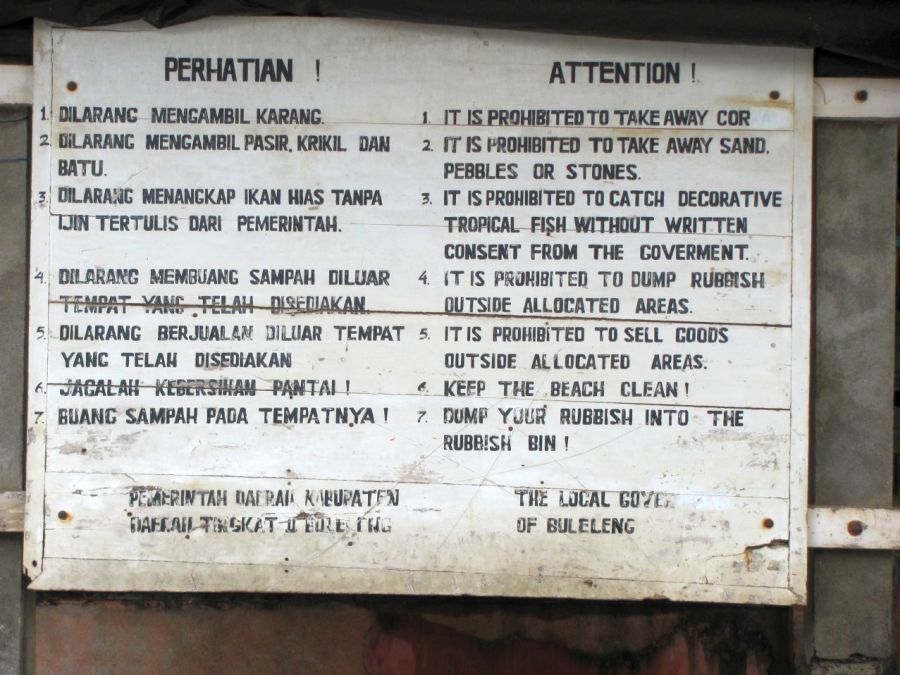 PERHATIAN !
1. DILARANG MENGAMBIL KARANG.
2. DILARANG MENGAMBIL PASIR, KRIKIL DAN
BATU.
3. DILARANG MENANGKAP IKAN HIAS TANPA
IJIN TERTULIS DARI PEMERINTAH.
4. DILARANG MEMBUANG SAMPAH DILUAR
TEMPAT YANG TELAH DISEDIAKAN.
5. DILARANG BERJUALAN DILUAR TEMPAT
YANG TELAH DISEDIAKAN
6. JAGALAH KEBERSIHAN PANTAI !
7. BUANG SAMPAH PADA TEMPATNYA !
PEMERINTAH DAERAH KABUPATEN
DAERAH TINGKAT II BULELENG
ATTENTION !
1. IT IS PROHIBITED TO TAKE AWAY COR
2. IT IS PROHIBITED TO TAKE AWAY SAND,
PEBBLES OR STONES.
3. IT IS PROHIBITED TO CATCH DECORATIVE
TROPICAL FISH WITHOUT WRITTEN
CONSENT FROM THE GOVERMENT.
4. IT IS PROHIBITED TO DUMP RUBBISH
OUTSIDE ALLOCATED AREAS.
5. IT IS PROHIBITED TO SELL GOODS
OUTSIDE ALLOCATED AREAS.
6. KEEP THE BEACH CLEAN !
7. DUMP YOUR RUBBISH INTO THE
RUBBISH BIN !
THE LOCAL GOVER
OF BULELENG